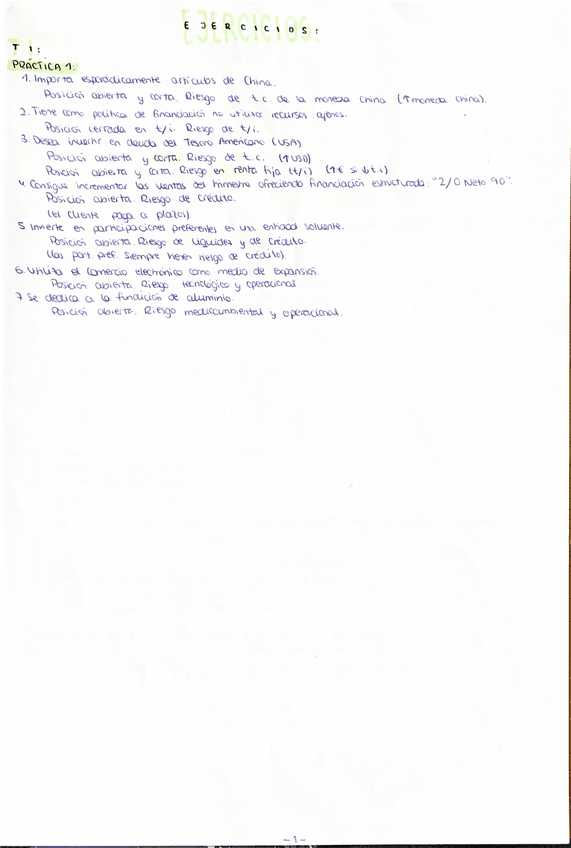 EJERCICIOS:
T 1:
PRÁCTICA 1:
1. Importa esporádicamente artículos de China.
Posición abierta y corta. Riesgo de t.c. de la moneda china (↑moneda china).
2. Tiene como política de financiación no utilizar recursos ajenos.
Posición cerrada en t/i. Riesgo de t/i.
3. Desea invertir en deuda del Tesoro Americano (USA)
Posición abierta y corta. Riesgo de t.c. (↑USD)
Posición abierta y corta. Riesgo en renta fija (t/i) (↑€ si ↓t i)
4. Consigue incrementar las ventas del trimestre ofreciendo financiación estructurada: "2/0 Neto 90".
Posición abierta. Riesgo de crédito.
(el cliente paga a plazos).
5. Invierte en participaciones preferentes en una entidad solvente.
Posición abierta. Riesgo de liquidez y de crédito.
(las part. pref. siempre tienen riesgo de crédito)
6. Utiliza el comercio electrónico como medio de expansión.
Posición abierta. Riesgo tecnológico y operacional
7. Se dedica a la fundición de aluminio.
Posición abierta. Riesgo medioambiental y operacional.
-1-